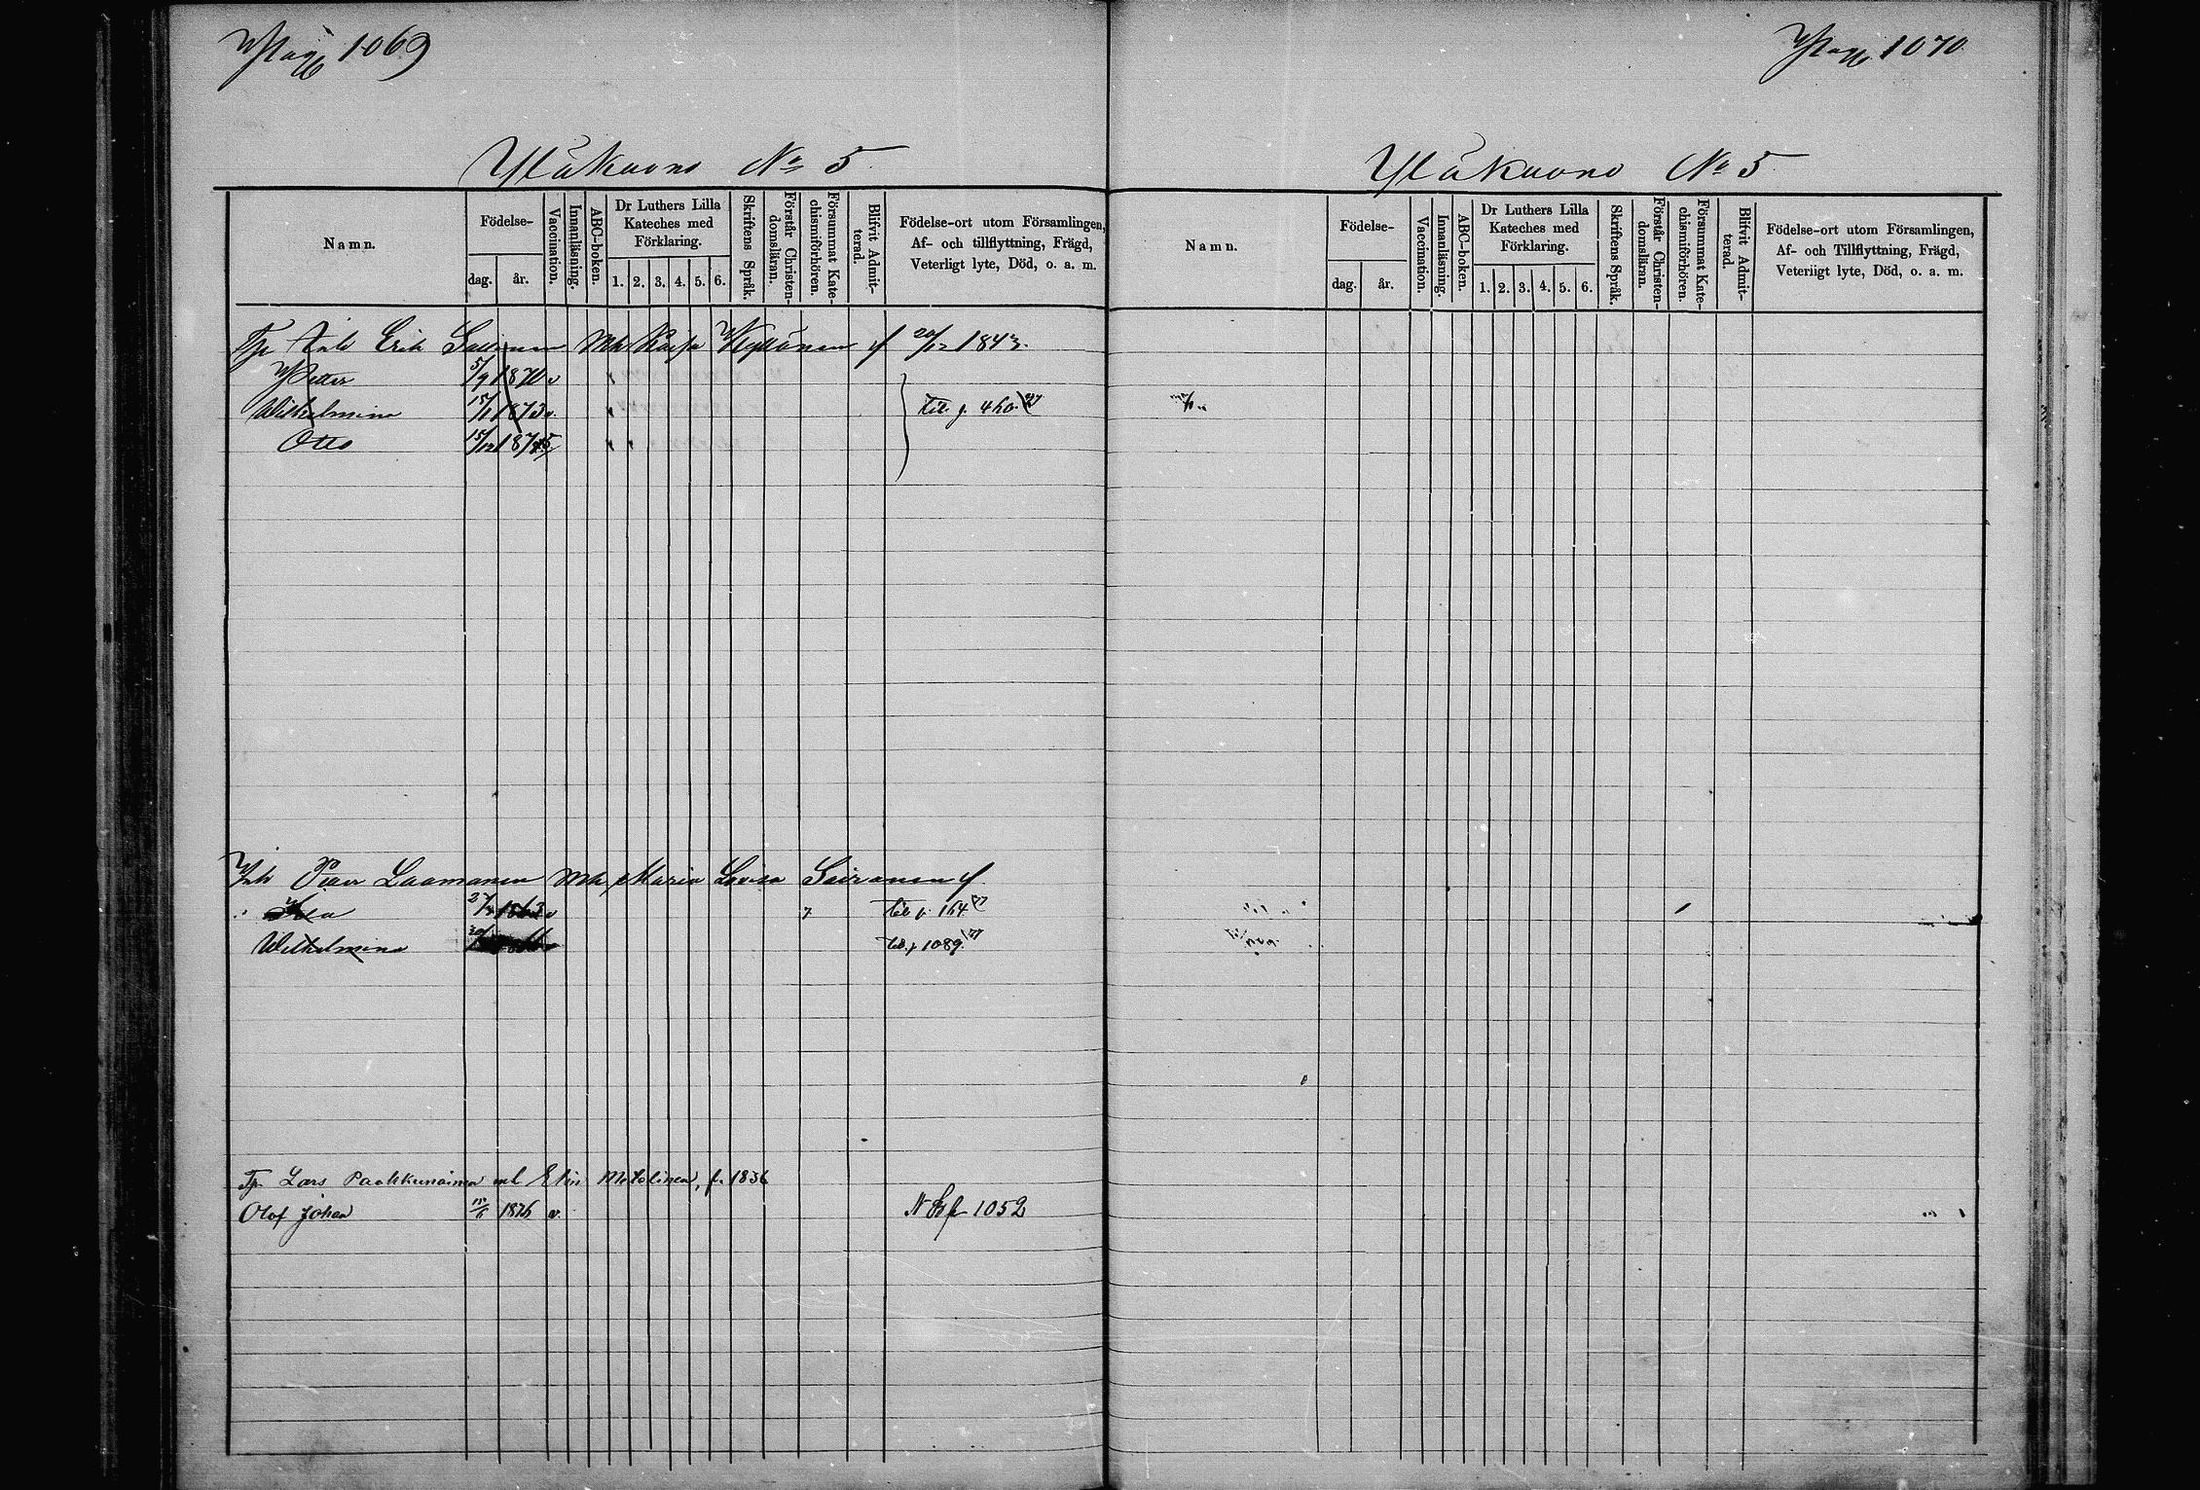 Pag 1069
Yläkuono No 5
Namn.
Födelse-
dag. år.
Vaccination.
Innanläsning.
ABC-boken.
Dr Luthers Lilla Kateches med Förklaring.
1. 2. 3. 4. 5. 6.
Skriftens Språk.
Förstår Christendomsläran.
Försummat Katechismiförhören.
Blifvit Admitterad.
Födelse-ort utom Församlingen,
Af- och tillflyttning, Frägd,
Veterligt lyte, Död, o. a. m.
Erik Mh Kaisa 1843.
Petter 5/9 1870 v
Wilhelmina 1873 v. till p. 460.
Otto 15/12
Laamanen Mh Maria Lovisa Sairanen
1863 v till p. 164
Wilhelmina till p 1089
Tp. Lars Paakkunainen mh Elin f. 1836
Olof Johan 1876 v. 1052
Pag 1070
Yläkuono No 5
Namn.
Födelse-
dag. år.
Vaccination.
Innanläsning.
ABC-boken.
Dr Luthers Lilla Kateches med Förklaring.
1. 2. 3. 4. 5. 6.
Skriftens Språk.
Förstår Christendomsläran.
Försummat Katechismiförhören.
Blifvit Admitterad.
Födelse-ort utom Församlingen,
Af- och Tillflyttning, Frägd,
Veteriigt lyte, Död, o. a. m.